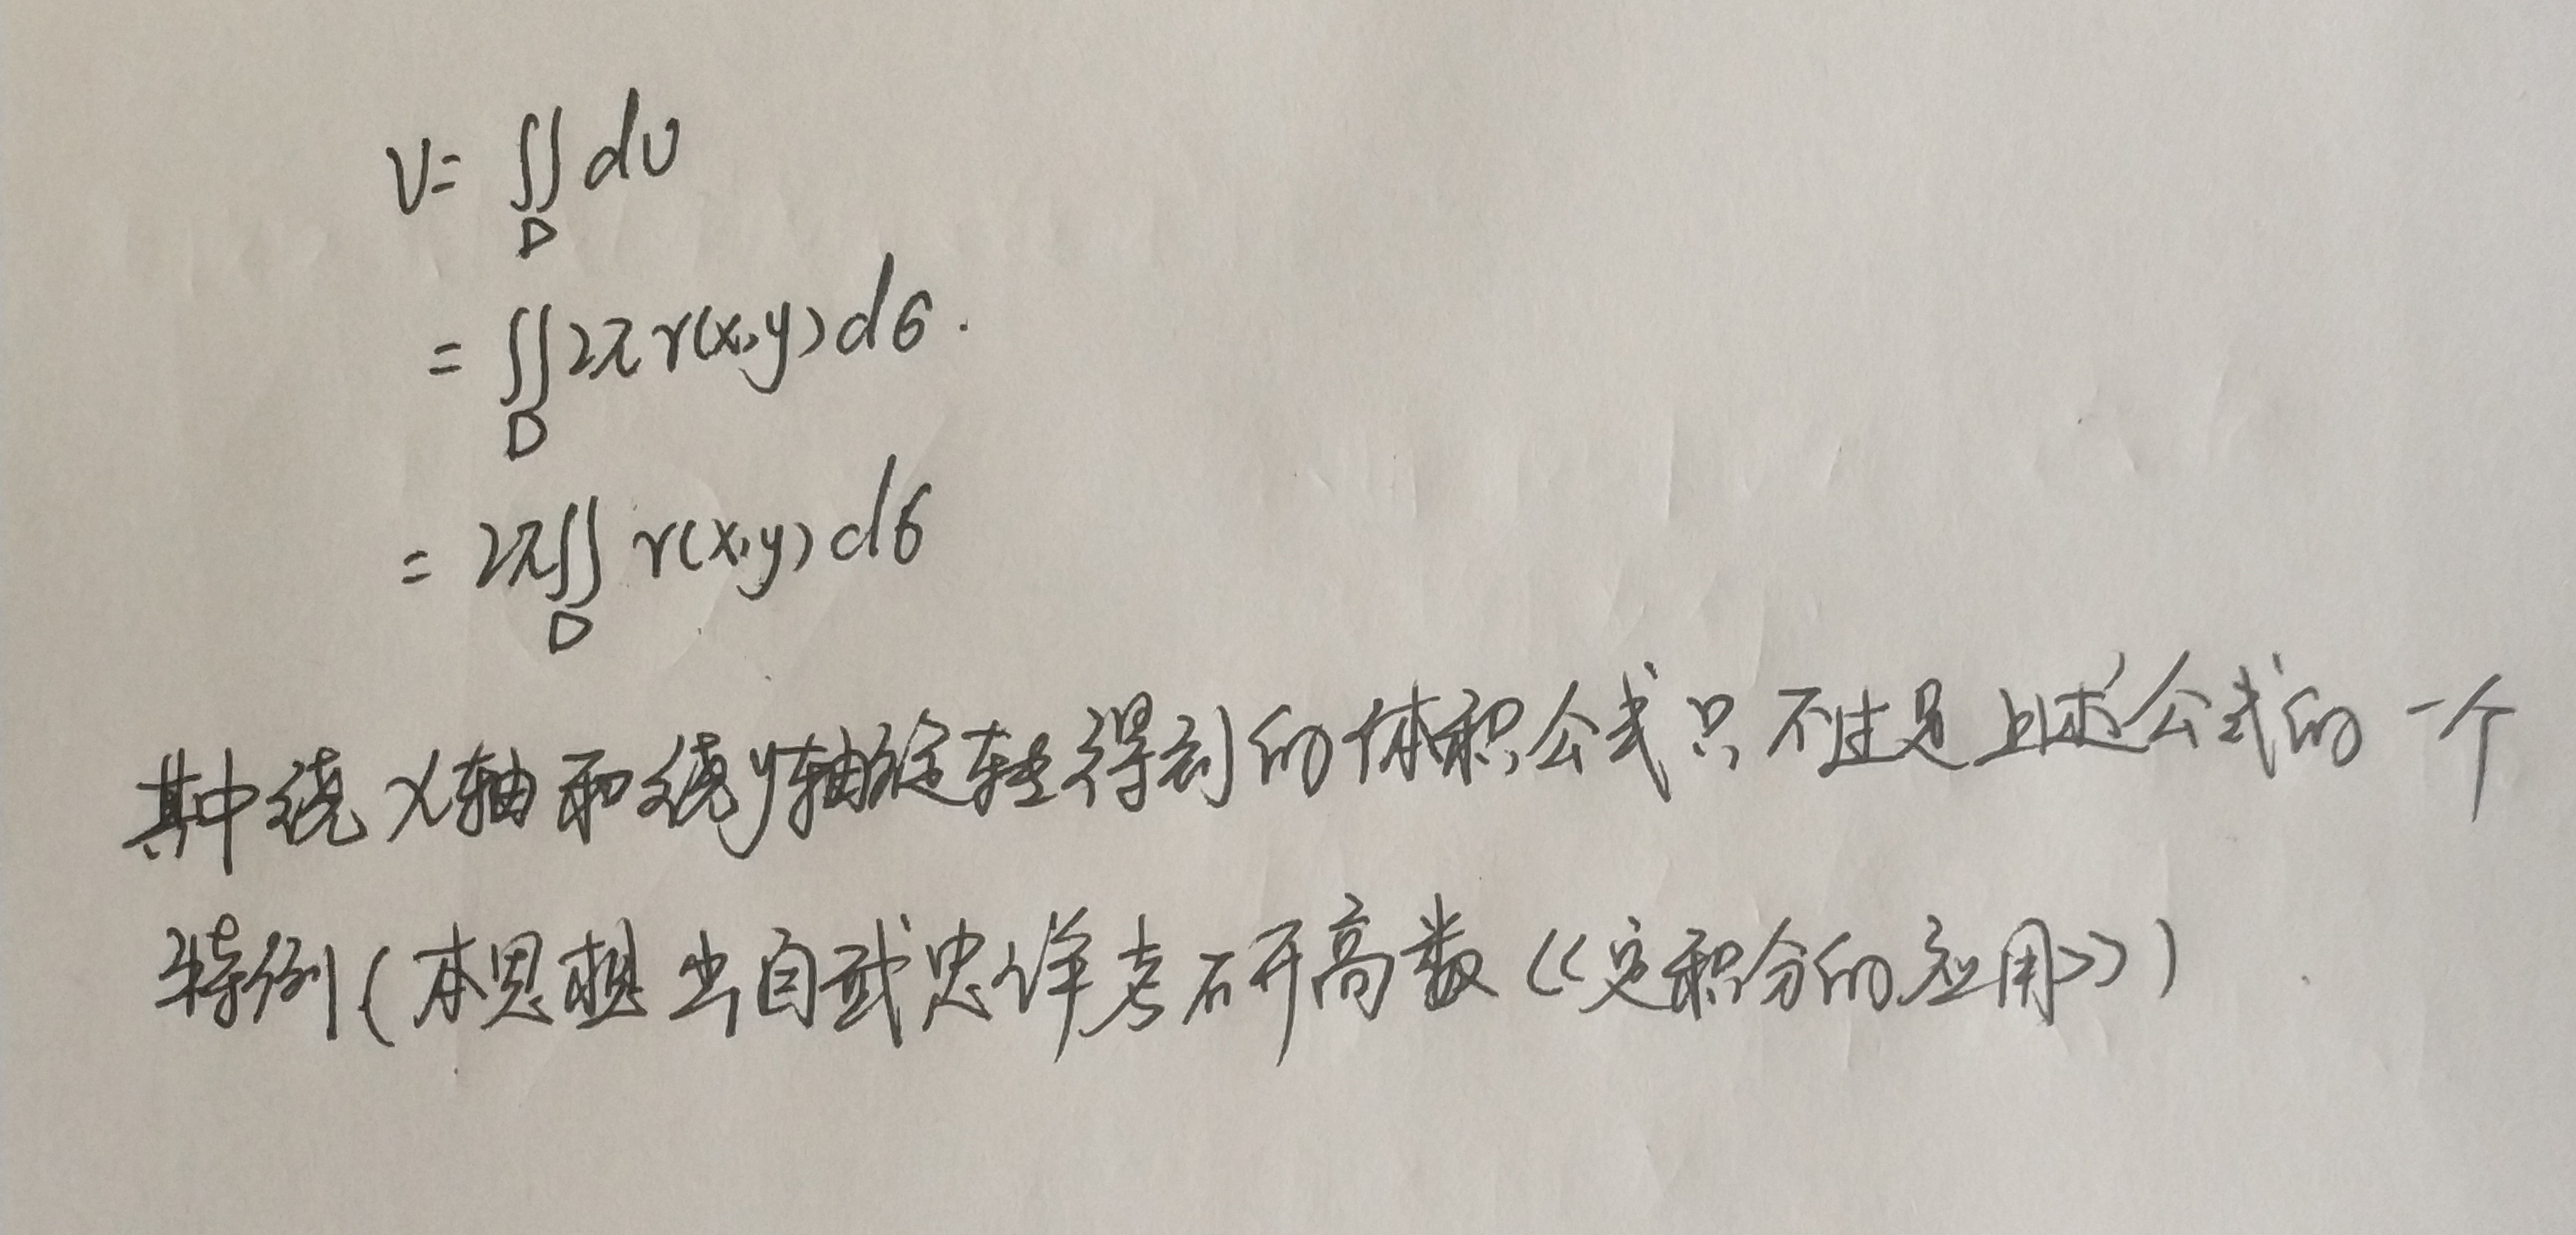 V = ∬_D dv
= ∬_D 2π r(x,y) dσ.
= 2π ∬_D r(x,y) dσ
其中绕x轴和绕y轴旋转得到的体积公式只不过是上述公式的一个
特例(本思想出自武忠祥考研高数《定积分的应用》)